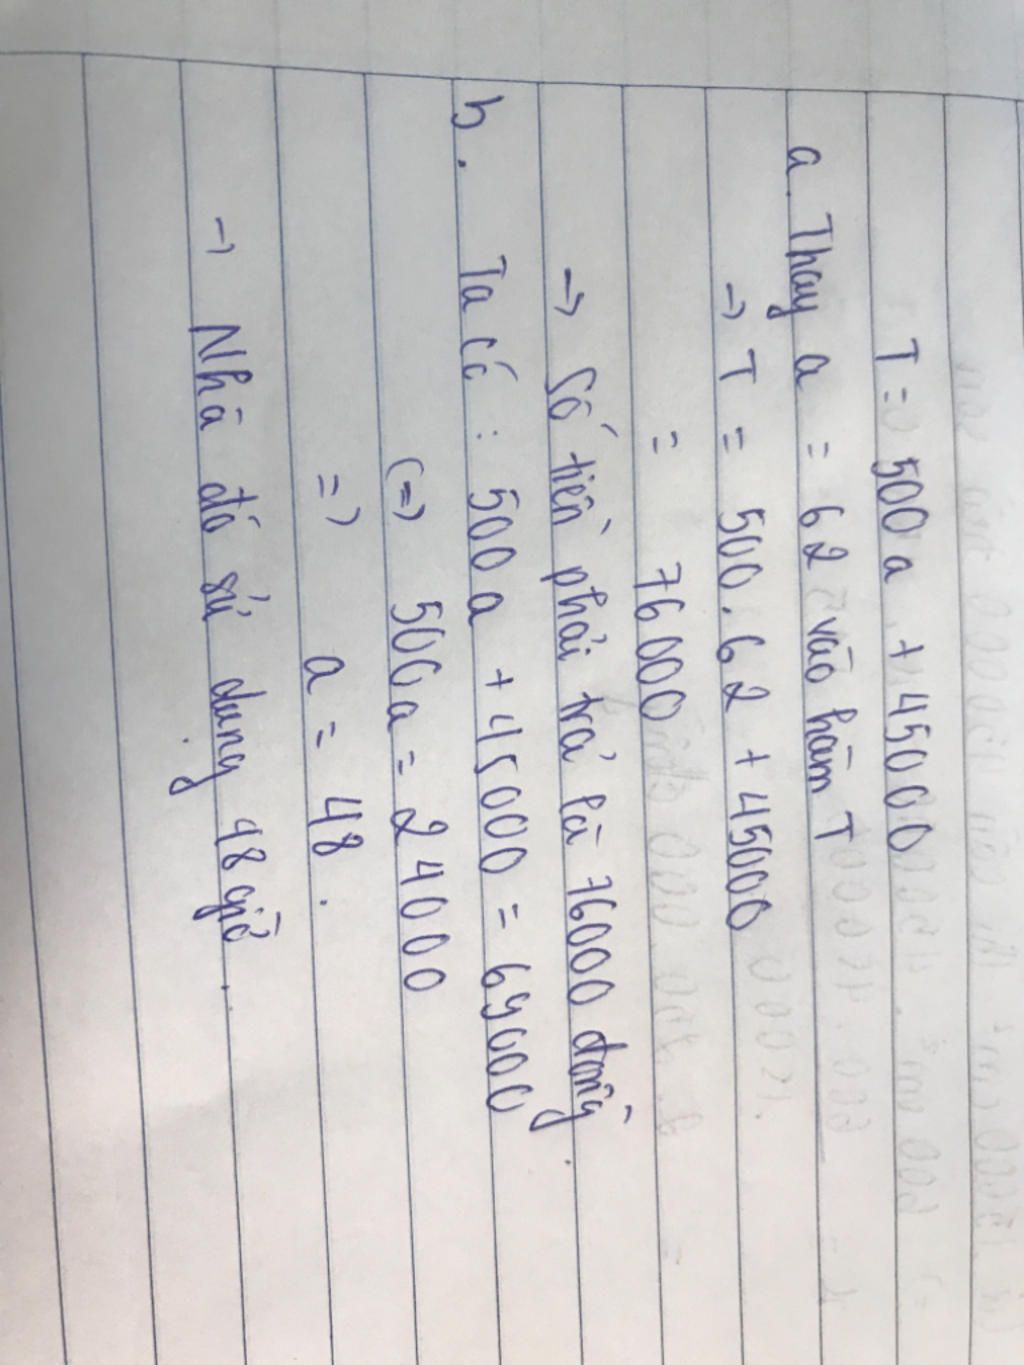 T = 500a + 45000
a. Thay a = 62 vào hàm T
→ T = 500.62 + 45000
= 76000
→ Số tiền phải trả là 76000 đồng.
b. Ta có : 500a + 45000 = 69000
(=) 500a = 24000
=) a = 48.
→ Nhà đó sử dụng 48 giờ.